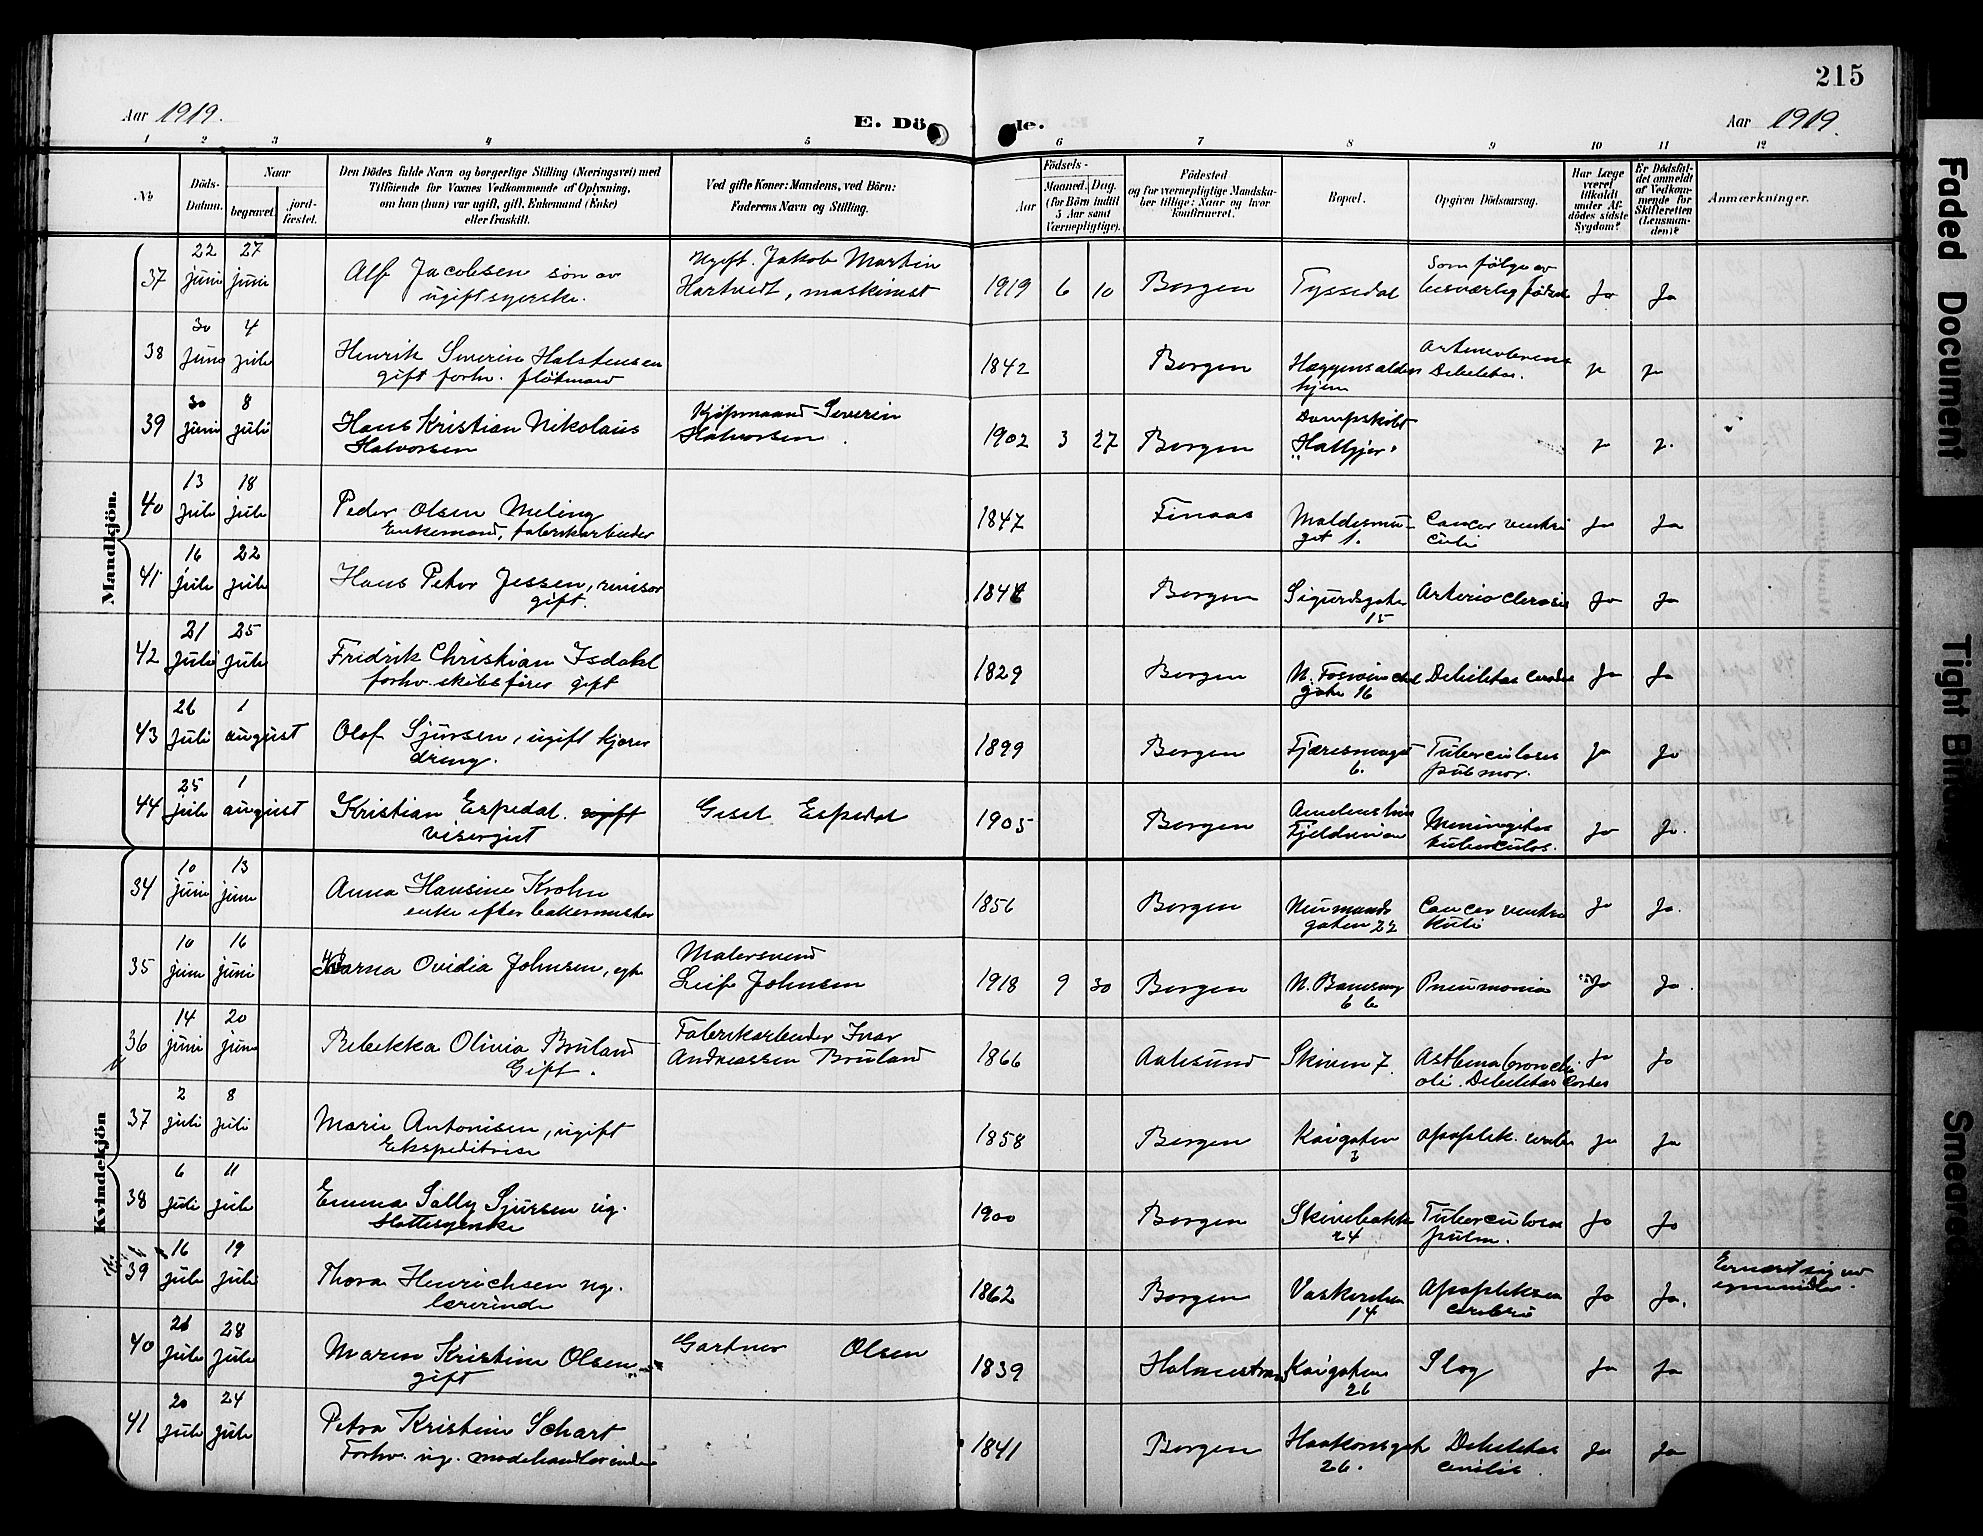 215
Aar 1919.
E. Dö de.
Aar 1919.
1 2 3 4 5 6 7 8 9 10 11 12
No
Döds-Datum.
Naar
begravet.
jord-fæstet.
Den Dödes fulde Navn og borgerlige Stilling (Næringsvei) med
Tilföiende for Voxnes Vedkommende af Oplysning,
om han (hun) var ugift, gift, Enkemand (Enke)
eller fraskilt.
Ved gifte Koner: Mandens, ved Börn:
Faderens Navn og Stilling.
Födsels-
Aar
Maaned. Dag.
(for Börn indtil
5 Aar samt
Værnepligtige).
Födested
og for værnepligtige Mandska-
ber tillige: Naar og hvor
konfirmeret.
Bopæl.
Opgiven Dödsaarsag.
Har Læge
været
tilkaldt
under Af-
dödes sidste
Sygdom?
Er Dödsfal-
det anmeldt
af Vedkom-
mende for
Skifteretten
(Lensman-
den)?
Anmærkninger.
Mandkjön.
37 22 juni 27 juni Alf Jacobsen søn av Ugift. Jakob Martin 1919 6 10 Bergen Tyssedal Som følge av Ja Ja
ugift syerske. Hartvedt, maskinist besværlig fødsel
38 30 juni 4 juli Henrik Severin Halstensen 1842 Bergen Hæggernalden ja ja
gift forh. fløtmand hjem Debilitas.
39 30 juni 8 juli Hans Kristian Nikolaus Kjøpmaand Severin 1902 3 27 Bergen Dampskibet ja ja
Halvorsen Halvorsen.
40 13 juli 18 juli Peder Olsen Meling 1847 Finaas Cancer ventri ja Ja
Enkemand, fabrikarbeider culi
41 16 juli 22 juli Hans Peter Jessen, revisor Bergen Sigurdsgaten Arterioclerosis Ja Ja
gift. 15
42 21 juli 25 juli Fredrik Christian Isdahl 1829 Bergen Debilitas Ja Ja
forhv. skibsfører gift gate 16
43 26 juli 1 august Olof Sjursen, ugift kjøres 1899 Bergen Fjæresmuget Tuberculosis Ja Ja
dreng. 6. pulmor.
44 25 juli 1 august Kristian Espedal. ugift Gisel Espedal 1905 Bergen Meningitis Ja Ja.
visergut Fjeldveien tuberculos.
Kvindekjön
34 10 juni 13 juni Anna Hansine Krohn 1856 Bergen Neumanns Cancer ventri Ja Ja.
enke efter bakermester gaten 22 kuli
35 10 juni 16 juni Ovidia Johnsen, egte Malersvend 1918 9 30 Bergen Pneumonia Ja Ja.
Leif Johnsen
36 14 juni 20 juni Rebekka Olivia Bruland Fabrikarbeider Ivar 1866 Aalesund Skiven 7. Asthma bronchi Ja Ja
Gift. Andreassen Bruland ale. Debilitas Cordis
37 2 juli 8 juli Marie Antonisen, ugift 1858 Bergen Kaigaten apoplek. cerebri ja ja
Ekspeditrise 3
38 6 juli 11 juli Emma Sally Sjursen ug. 1900 Bergen Skivebakken Tuberculosis Ja Ja
Hattesyerske 24 pulm.
39 16 juli 19 juli Thora Henrichsen ug. 1862 Bergen Vaskerelven Apopleksia Ja Ja.
lærerinde 14 cerebri
40 21 juli 28 juli Maren Kristine Olsen Gartner Olsen 1839 Holmestrand Kaigaten Slag Ja Ja
gift 26
41 20 juli 24 juli Petra Kristine Schart 1841 Bergen Haakonsgate Debilitas Ja Ja
Forhv. ug. modehandlerinde 26. senilis
Faded Document
Tight Binding
Smeared